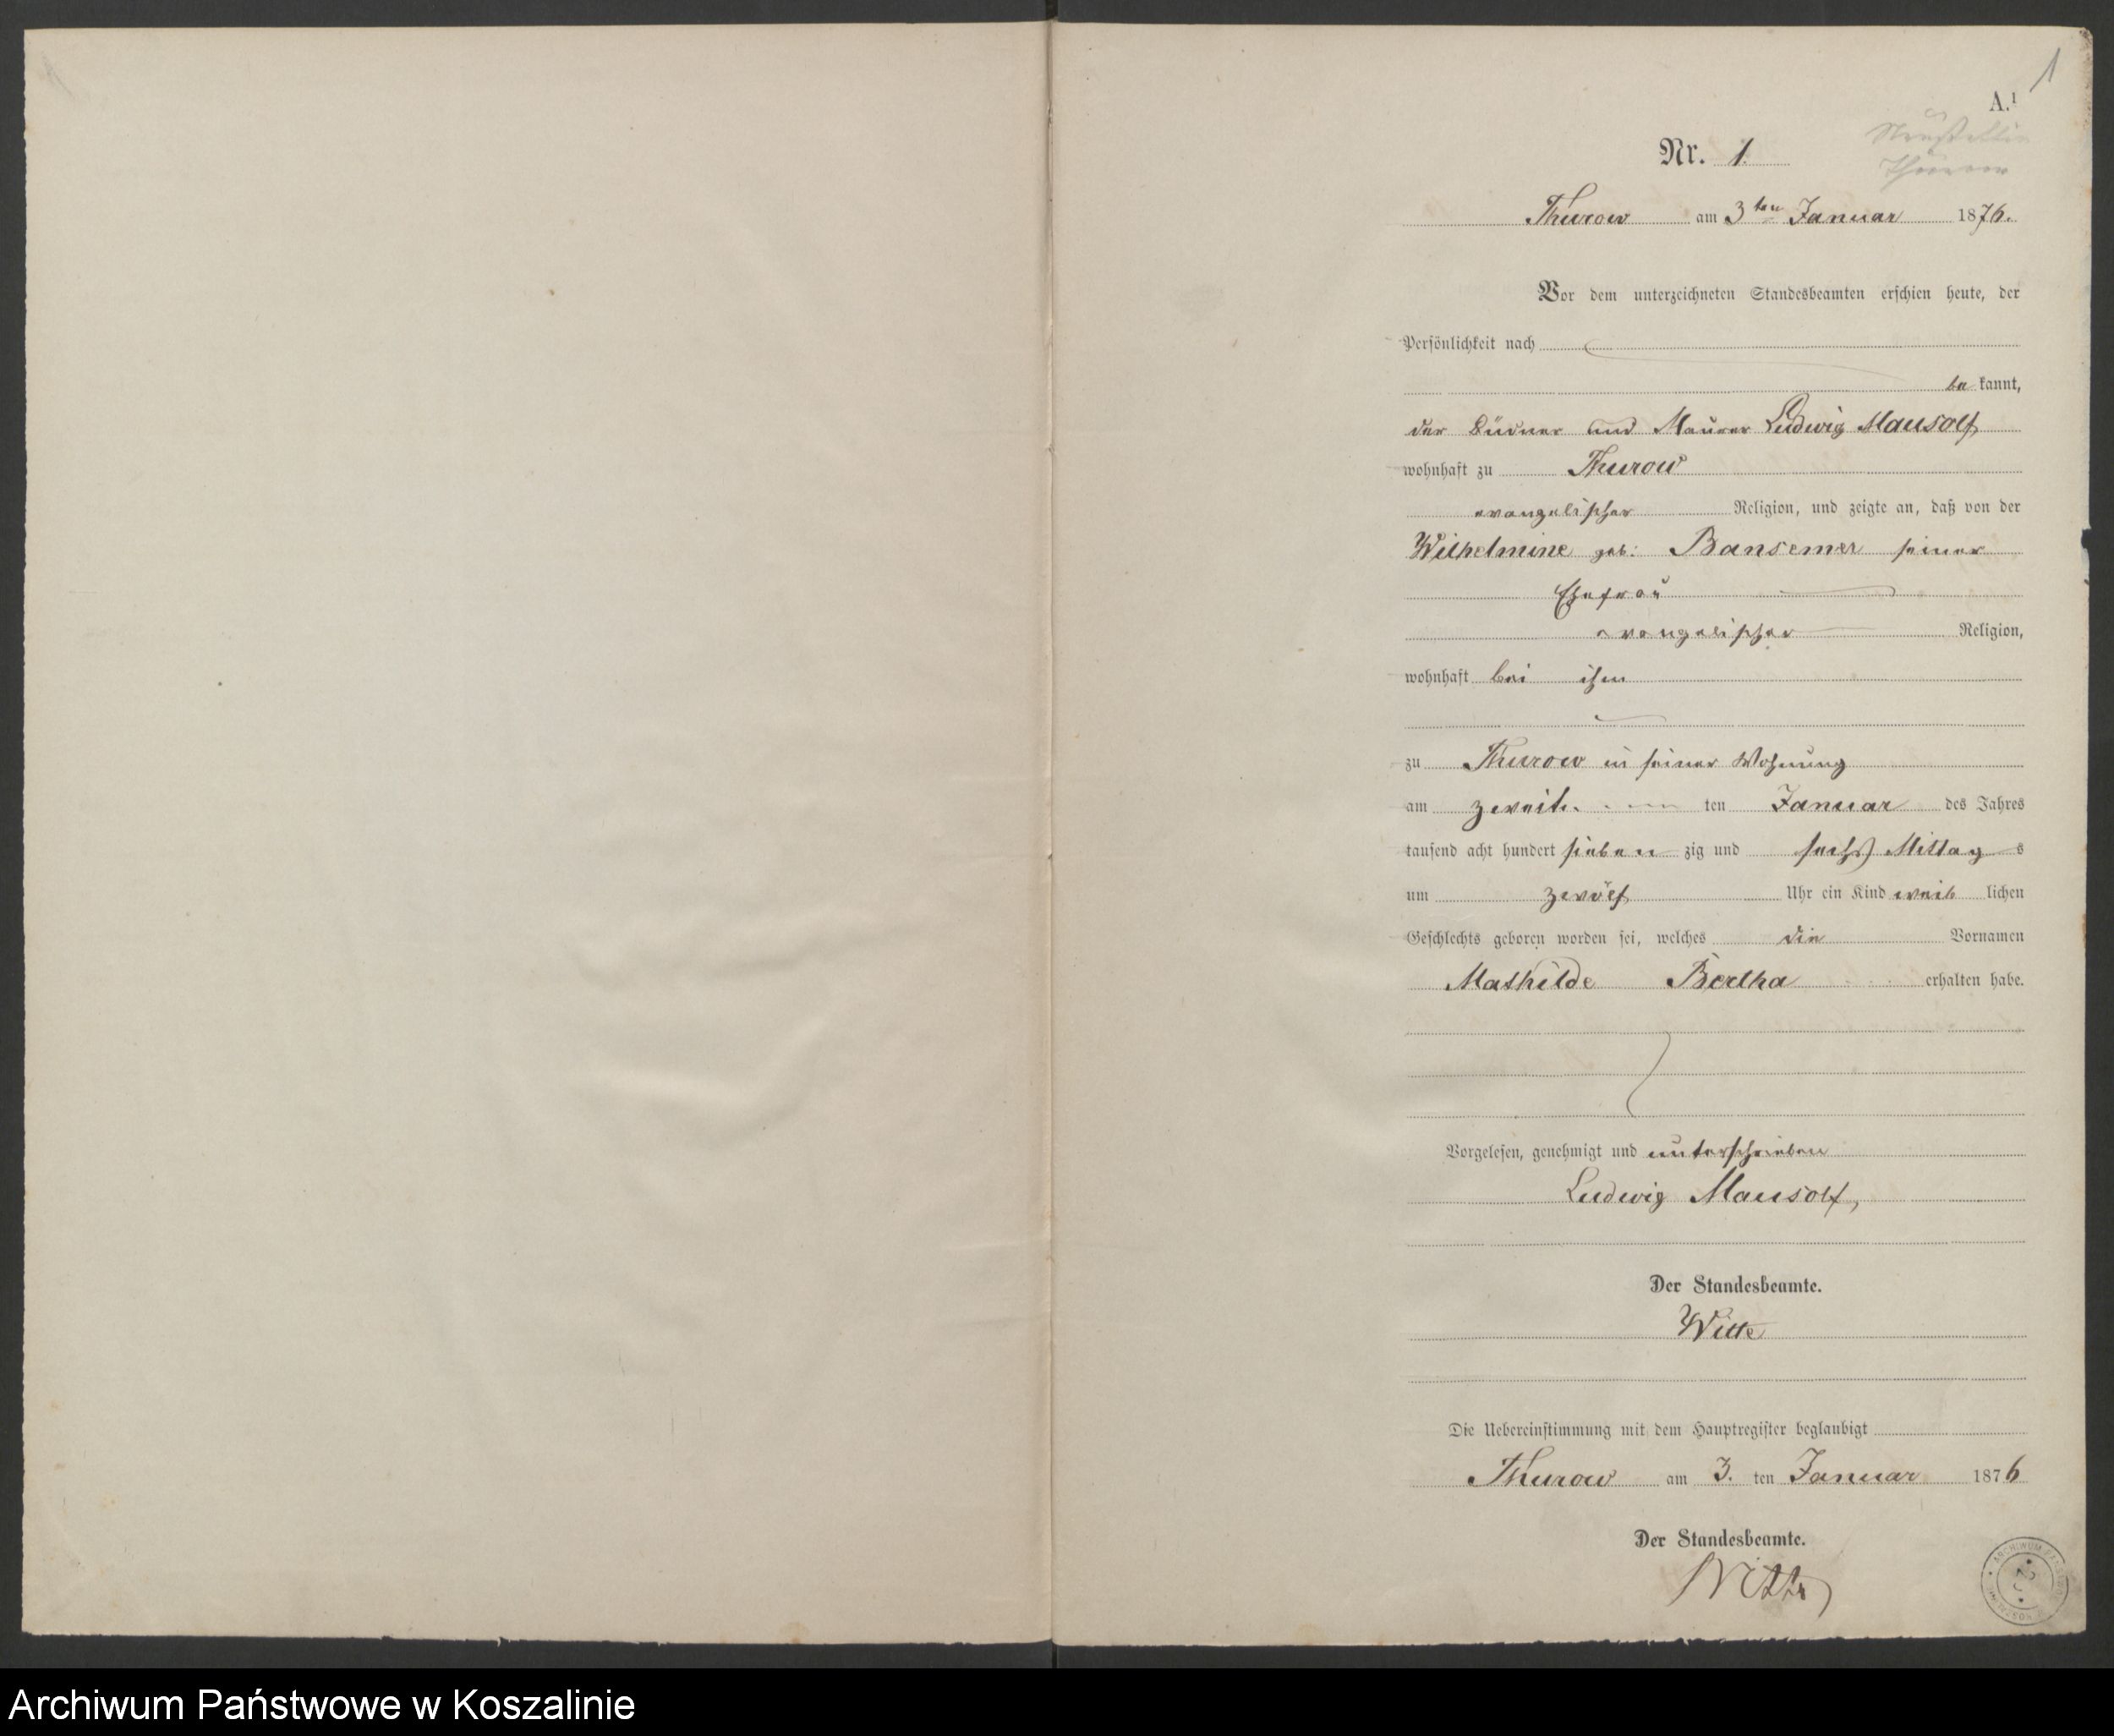 1
A.¹
Neustettin
Thurow
Nr. 1.
Thurow am 3ten Januar 1876.
Vor dem unterzeichneten Standesbeamten erschien heute, der
Persönlichkeit nach
be kannt,
der Büdner und Maurer Ludwig Mausolf
wohnhaft zu Thurow
evangelischer Religion, und zeigte an, daß von der
Wilhelmine geb: Bansemer seiner
Ehefrau
evangelischer Religion,
wohnhaft bei ihm
zu Thurow in seiner Wohnung
am zweiten ten Januar des Jahres
tausend acht hundert sieben zig und sechs Mittag s
um zwölf Uhr ein Kind weib lichen
Geschlechts geboren worden sei, welches die Vornamen
Mathilde Bertha erhalten habe.
Vorgelesen, genehmigt und unterschrieben
Ludwig Mausolf,
Der Standesbeamte.
Witte
Die Uebereinstimmung mit dem Hauptregister beglaubigt
Thurow am 3. ten Januar 1876
Der Standesbeamte.
Witte
ARCHIWUM
Archiwum Państwowe w Koszalinie